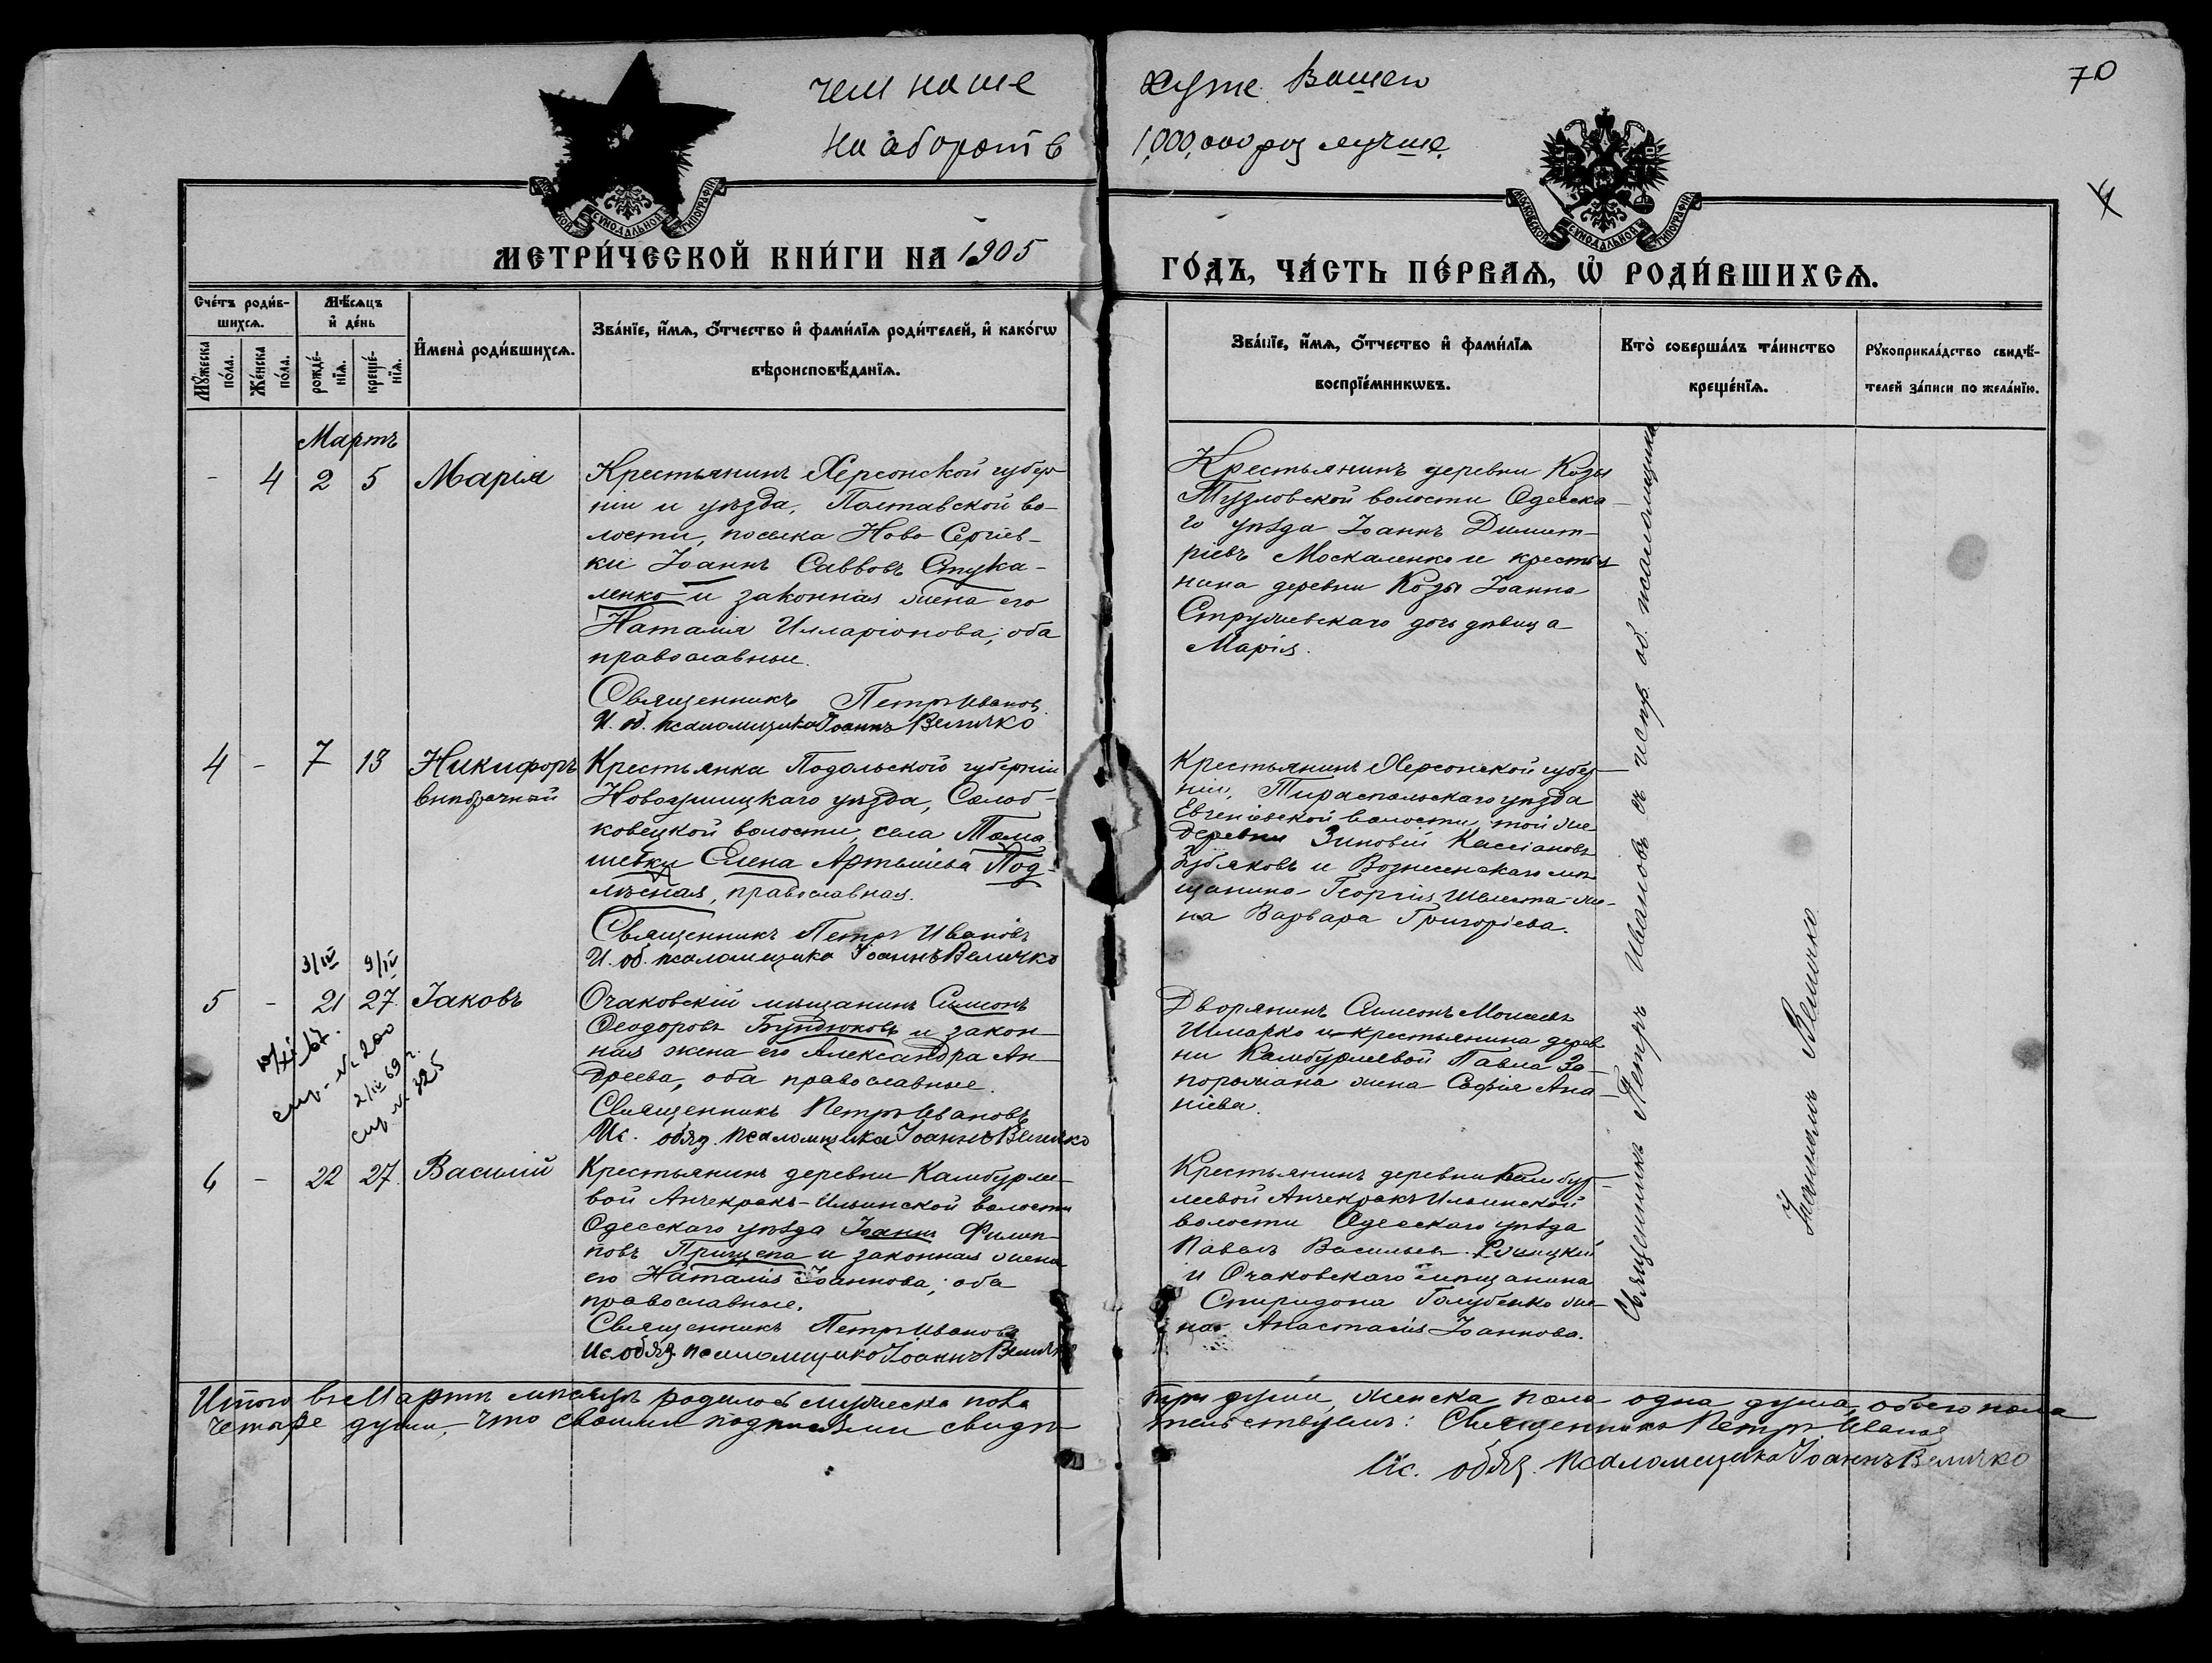 чем наше хуже Вашего
на оборот в 1,000,000 раз лучше
70
МОСКОВСКОЙ СѴНОДАЛЬНОЙ ТИПОГРАФІИ
МЕТРИ́ЧЕСКОЙ КНИ́ГИ НА 1905
ГО́ДЪ, ЧА́СТЬ ПЕ́РВАѦ, Ѡ҆ РОДИ́ВШИХСѦ.
Сче́тъ роди́в-
шихсѧ.
Мꙋ́жеска по́ла.
Же́нска по́ла.
Мѣ́сѧцъ
и҆ де́нь
рожде́-
нїѧ.
креще́-
нїѧ.
И҆мена̀ роди́вшихсѧ.
Зва́нїе, и҆́мѧ, ѻ҆́тчество и҆ фами́лїѧ роди́телей, и҆ како́гѡ
вѣроисповѣ́данїѧ.
Зва́нїе, и҆́мѧ, ѻ҆́тчество и҆ фами́лїѧ
воспрїе́мникѡвъ.
Кто̀ соверша́лъ та́инство
креще́нїѧ.
Рꙋкоприкла́дство свидѣ́-
телей за́писи по жела́нїю.
Мартъ
- 4 2 5 Марія
Крестьянинъ Херсонской губер-
ніи и уѣзда, Полтавской во-
лости, поселка Ново Сергіев-
ки Іоаннъ Саввовъ Стука-
ленко и законная жена его
Наталія Илларіонова; оба
православные.
Священникъ Петръ Ивановъ
И. об. псаломщика Іоаннъ Величко
Крестьянинъ деревни Козы
Тузловской волости Одесска-
го уѣзда Іоаннъ Димит-
ріевъ Москаленко и крестья
нина деревни Козы Іоанна
дочь дѣвица
Марія.
4 - 7 13 Никифоръ
внѣбрачный
Крестьянка Подольской губерніи
Новоушицкаго уѣзда, Солоб-
ковецкой волости, села Тома
шевки Елена Артемьева Под-
лѣсная, православная.
Священникъ Петръ Ивановъ
И. об. псаломщика Іоаннъ Величко
Крестьянинъ Херсонской губер-
ніи, Тираспольскаго уѣзда
Евгеніевской волости, той же
деревни Зиновій Кассіановъ
и Вознесенскаго мѣ
щанина Георгія же-
на Варвара Григорьева.
3/IV 9/IV
5 - 21 27. Іаковъ
спр. № 200
2/IV 69 г.
спр. № 325
Очаковскій мѣщанинъ Симеонъ
Ѳеодоровъ Бундюковъ и закон-
ная жена его Александра Ан-
дреева, оба православные.
Священникъ Петръ Ивановъ
Ис. обяз. псаломщика Іоаннъ Величко
Дворянинъ Симеонъ Моисеевъ
Шмарко и крестьянина дерев
ни Камбурлеевой Павла За-
порожана жена Софія Ана-
ніева.
6 - 22 27. Василій
Крестьянинъ деревни Камбурлее-
вой Анчекракъ-Ильинской волости
Одесскаго уѣзда Іоаннъ Филип-
повъ Прищепа и законная жена
его Наталія Іоаннова; оба
православные.
Священникъ Петръ Ивановъ
Ис. обяз. псаломщика Іоаннъ Величко
Крестьянинъ деревни Камбур-
леевой Анчекракъ Ильинской
волости Одесскаго уѣзда
Павелъ Васильевъ
и Очаковскаго мѣщанина
Спиридона Голубенко же-
на Анастасія Іоаннова.
Священникъ Петръ Ивановъ съ испр. об. псаломщика
Іоанномъ Величко
Итого въ Мартѣ мѣсяцѣ родилось мужеска пола три души, женска пола одна душа, обоего пола
четыре души, что своими подписями свидѣтельствуемъ: Священникъ Петръ Ивановъ
Ис. обяз. псаломщика Іоаннъ Величко